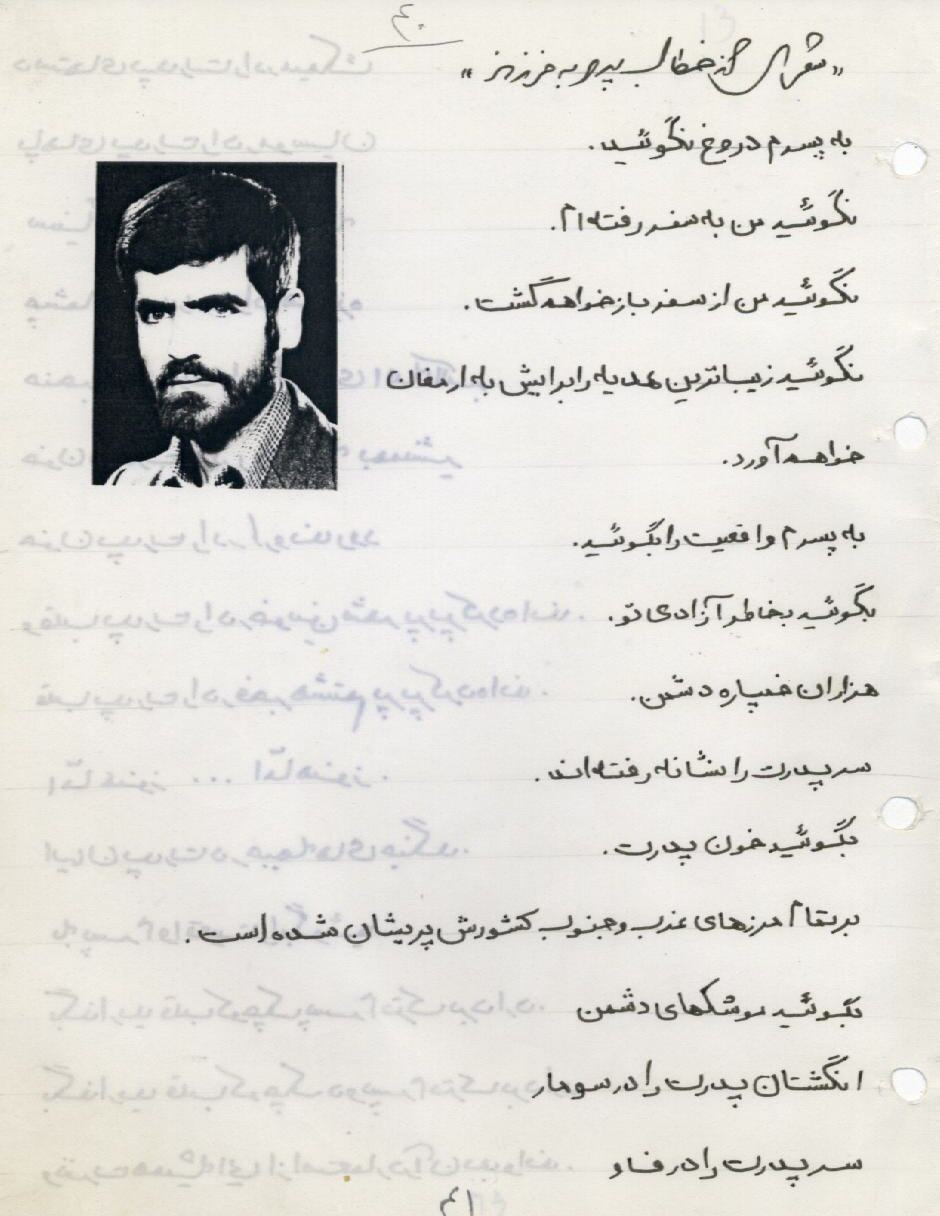 ۴۰
« شعری از خطاب پدر به فرزند »
به پسرم دروغ نگوئید.
نگوئید من به سفر رفته‌ام.
نگوئید من از سفر باز خواهم گشت.
نگوئید زیباترین هدیه را برایش به ارمغان
خواهم آورد.
به پسرم واقعیت را بگوئید.
بگوئید بخاطر آزادی تو.
هزاران خمپاره دشمن.
سر پدرت را نشانه رفته‌اند.
بگوئید خون پدرت.
بر تمام مرزهای غرب و جنوب کشورش پریشان شده است.
بگوئید موشکهای دشمن
انگشتان پدرت را در سومار
سر پدرت را در فاو
۴۱